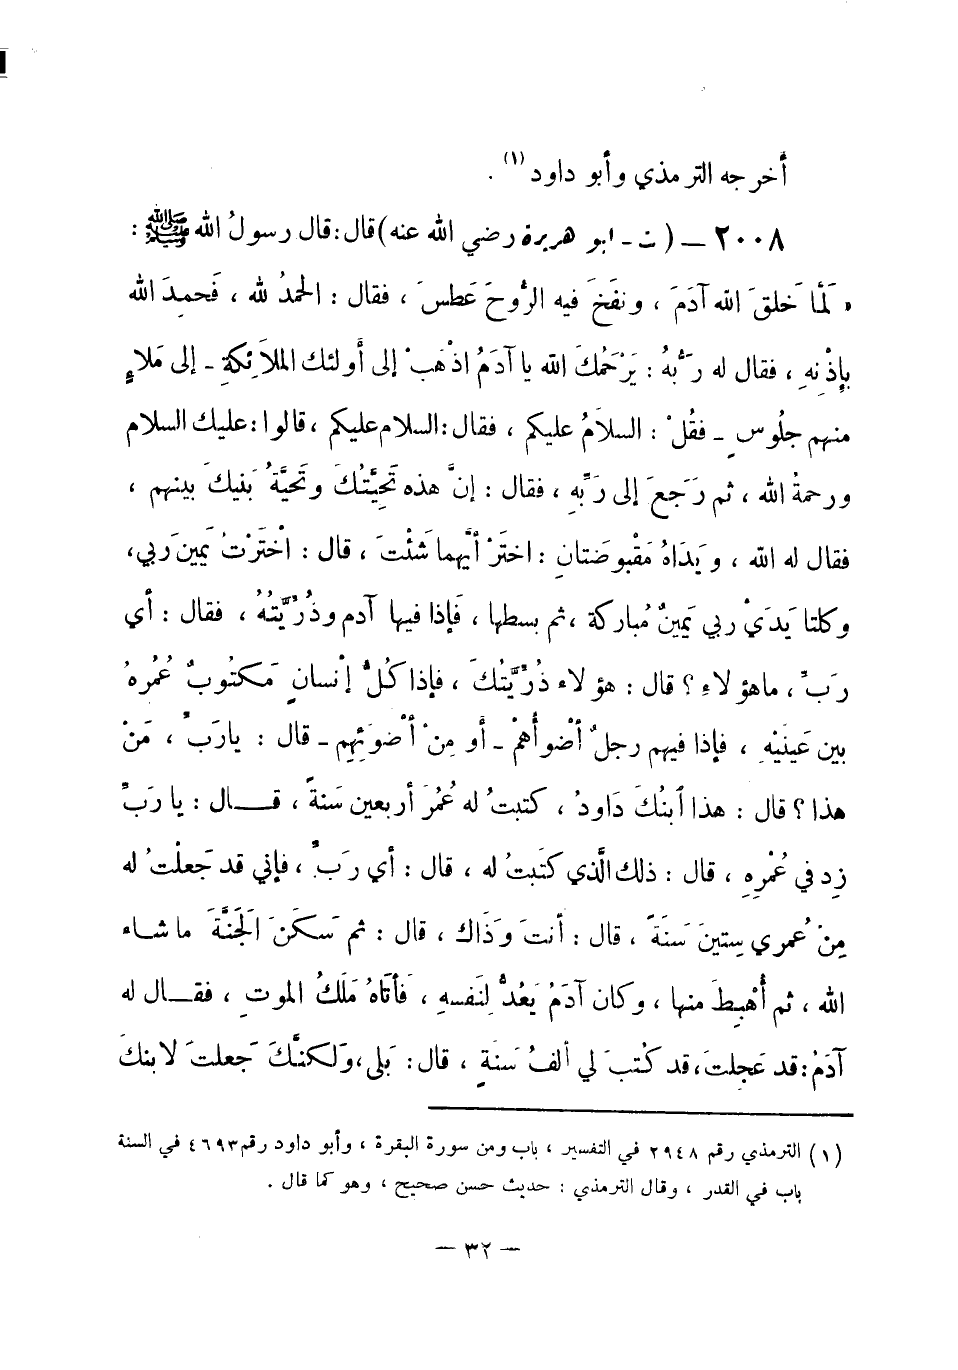 أخرجه الترمذي وأبو داود (١) .
٢٠٠٨ – ( ت - ابو هريرة رضي الله عنه) قال : قال رسولُ الله ﷺ :
« لَمَّا خَلقَ الله آدَمَ ، ونفَخَ فيه الرُّوحَ عَطسَ ، فقال : الحمدُ لله ، فَحمِدَ الله
بإِذْنِهِ ، فقال له رَبُّهُ : يَرْحَمُكَ الله يا آدَمُ اذْهَبْ إلى أُولئك الملاَئِكةِ - إلى مَلاءٍ
منهم جلُوسٍ - فقُلْ : السلاَمُ عليكم ، فقال : السلام عليكم ، قالوا : عليك السلام
ورحمةُ الله ، ثم رَجَعَ إلى رَبِّهِ ، فقال : إنَّ هذه تَحِيَّتُكَ وتَحيَّةُ بَنيكَ بينهم ،
فقال له الله ، ويَدَاهُ مَقْبوضَتانِ : اختَرْ أيَّهما شَئْتَ ، قال : اخْتَرْتُ يَمينَ ربي،
وكلتا يَدَيْ ربي يَمينٌ مُباركة ، ثم بسطها ، فَإذا فيها آدم وذُرِّيَّتُهُ ، فقال : أي
رَبِّ ، ماهؤلاءِ ؟ قال : هؤلاء ذُرِّيَّتُكَ ، فإذا كُلُّ إنْسانٍ مَكتُوبٌ عُمُرهُ
بين عَينَيْهِ ، فإذا فيهم رجلٌ أضْوأُهمْ - أو مِنْ أضْوَئِهِم - قال : ياربِّ ، مَنْ
هذا ؟ قال : هذا ابنُكَ دَاودُ ، كتبتُ له عُمُرَ أربعين سَنةً ، قــال : يا رَبِّ
زِد في عُمْرِهِ ، قال : ذلك الَّذي كَتَبتُ له ، قال : أي رَبِّ ، فإني قد جَعلْتُ له
مِنْ عُمري سِتينَ سَنةً ، قال : أنتَ وَذَاكَ ، قال : ثم سَكَنَ الجَنَّةَ ما شاء
الله ، ثم أُهْبِطَ منها ، وكان آدَمُ يَعُدُّ لِنَفسهِ ، فَأتَاهُ مَلَكُ الموتِ ، فقــال له
آدَمُ : قد عَجِلتَ ، قد كُتبَ لي ألفُ سَنَةٍ ، قال : بَلى ، ولَكنَّكَ جَعلتَ لابنكَ
(١) الترمذي رقم ٢٩٤٨ في التفسير ، باب ومن سورة البقرة ، وأبو داود رقم ٤٦٩٣ في السنة
باب في القدر ، وقال الترمذي : حديث حسن صحيح ، وهو كما قال .
– ٣٢ –